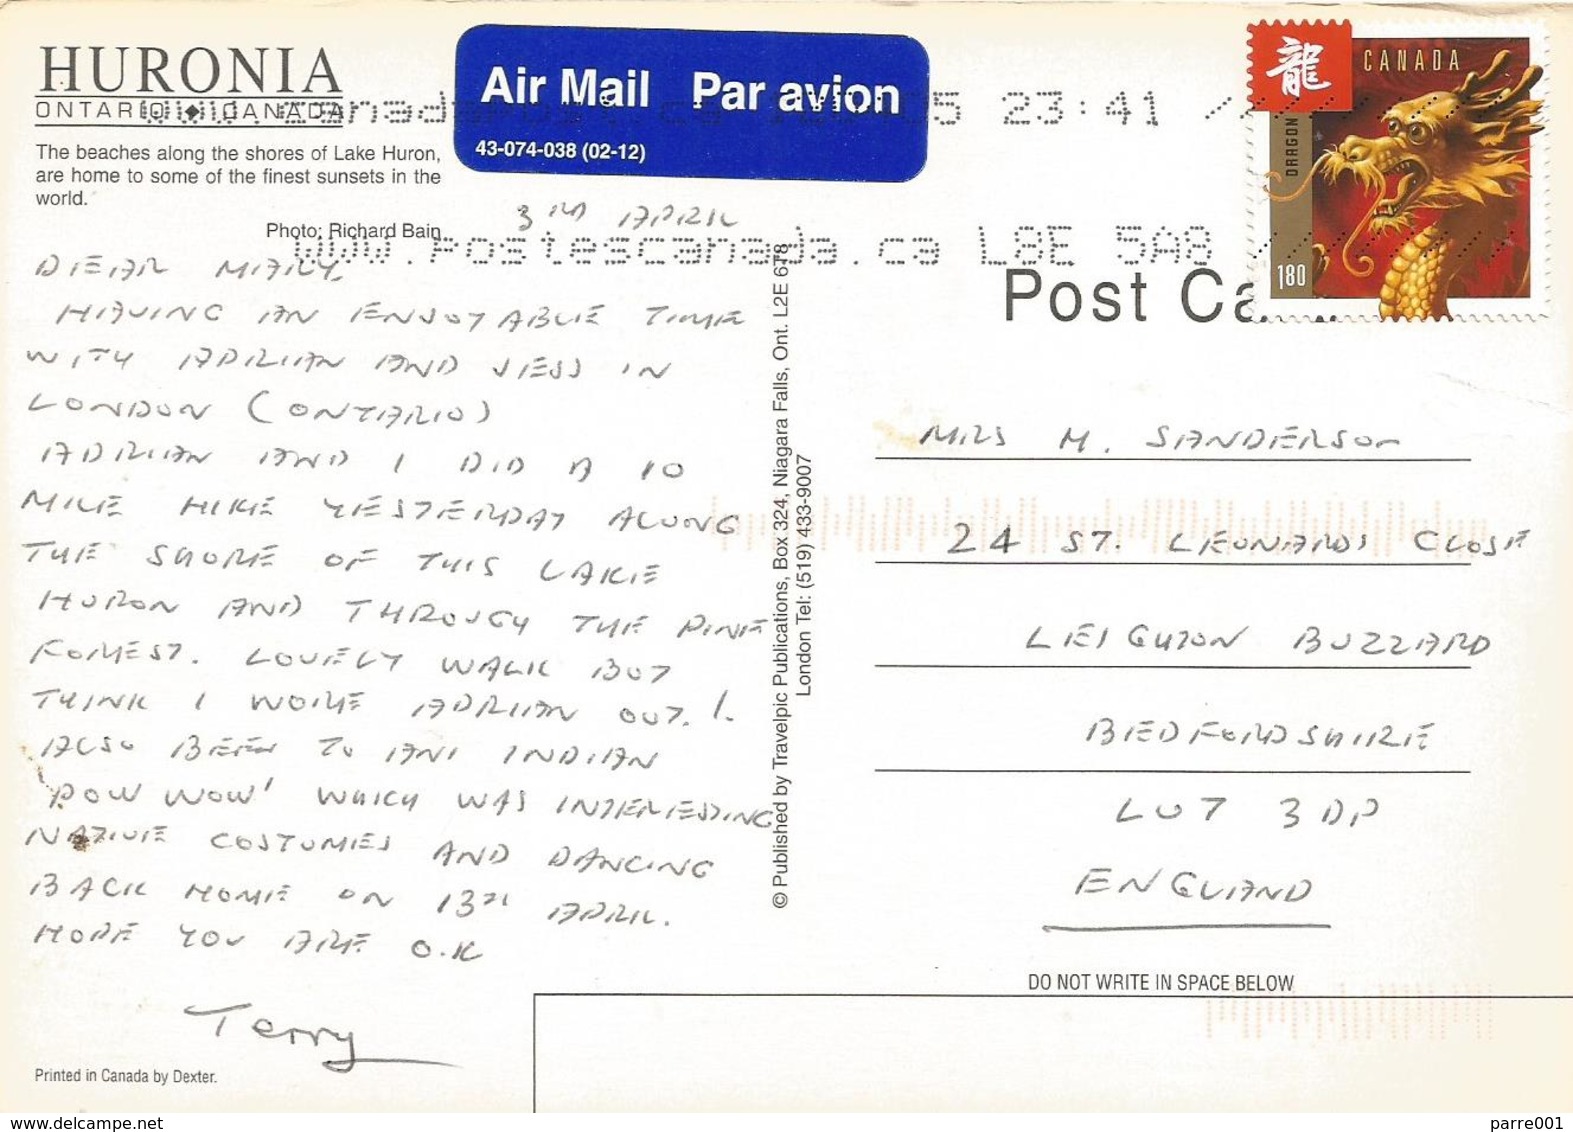 HURONIA
ONTARIO ◆ CANADA
The beaches along the shores of Lake Huron,
are home to some of the finest sunsets in the
world.
Photo: Richard Bain
Air Mail Par avion
43-074-038 (02-12)
05 23:41
www.Postescanada.ca L8E 5A8
龍
CANADA
DRAGON
180
Post
3RD APRIL
DEAR MARY.
HAVING AN ENJOYABLE TIME
WITH ADRIAN AND JESS IN
LONDON (ONTARIO)
ADRIAN AND I DID A 10
MILE HIKE YESTERDAY ALONG
THE SHORE OF THIS LAKE
HURON AND THROUGH THE PINE
FOREST. LOVELY WALK BUT
THINK I WORE ADRIAN OUT. !.
ALSO BEEN TO AN INDIAN
'POW WOW' WHICH WAS INTERESTING
NATIVE COSTUMES AND DANCING
BACK HOME ON 13TH APRIL.
HOPE YOU ARE O.K
Terry
Printed in Canada by Dexter.
© Published by Travelpic Publications, Box 324, Niagara Falls, Ont. L2E 6T8
London Tel: (519) 433-9007
MRS M. SANDERSON
24 ST. LEONARDS CLOSE
LEIGHTON BUZZARD
BEDFORDSHIRE
LU7 3DP
ENGLAND
DO NOT WRITE IN SPACE BELOW
www.delcampe.net
parre001